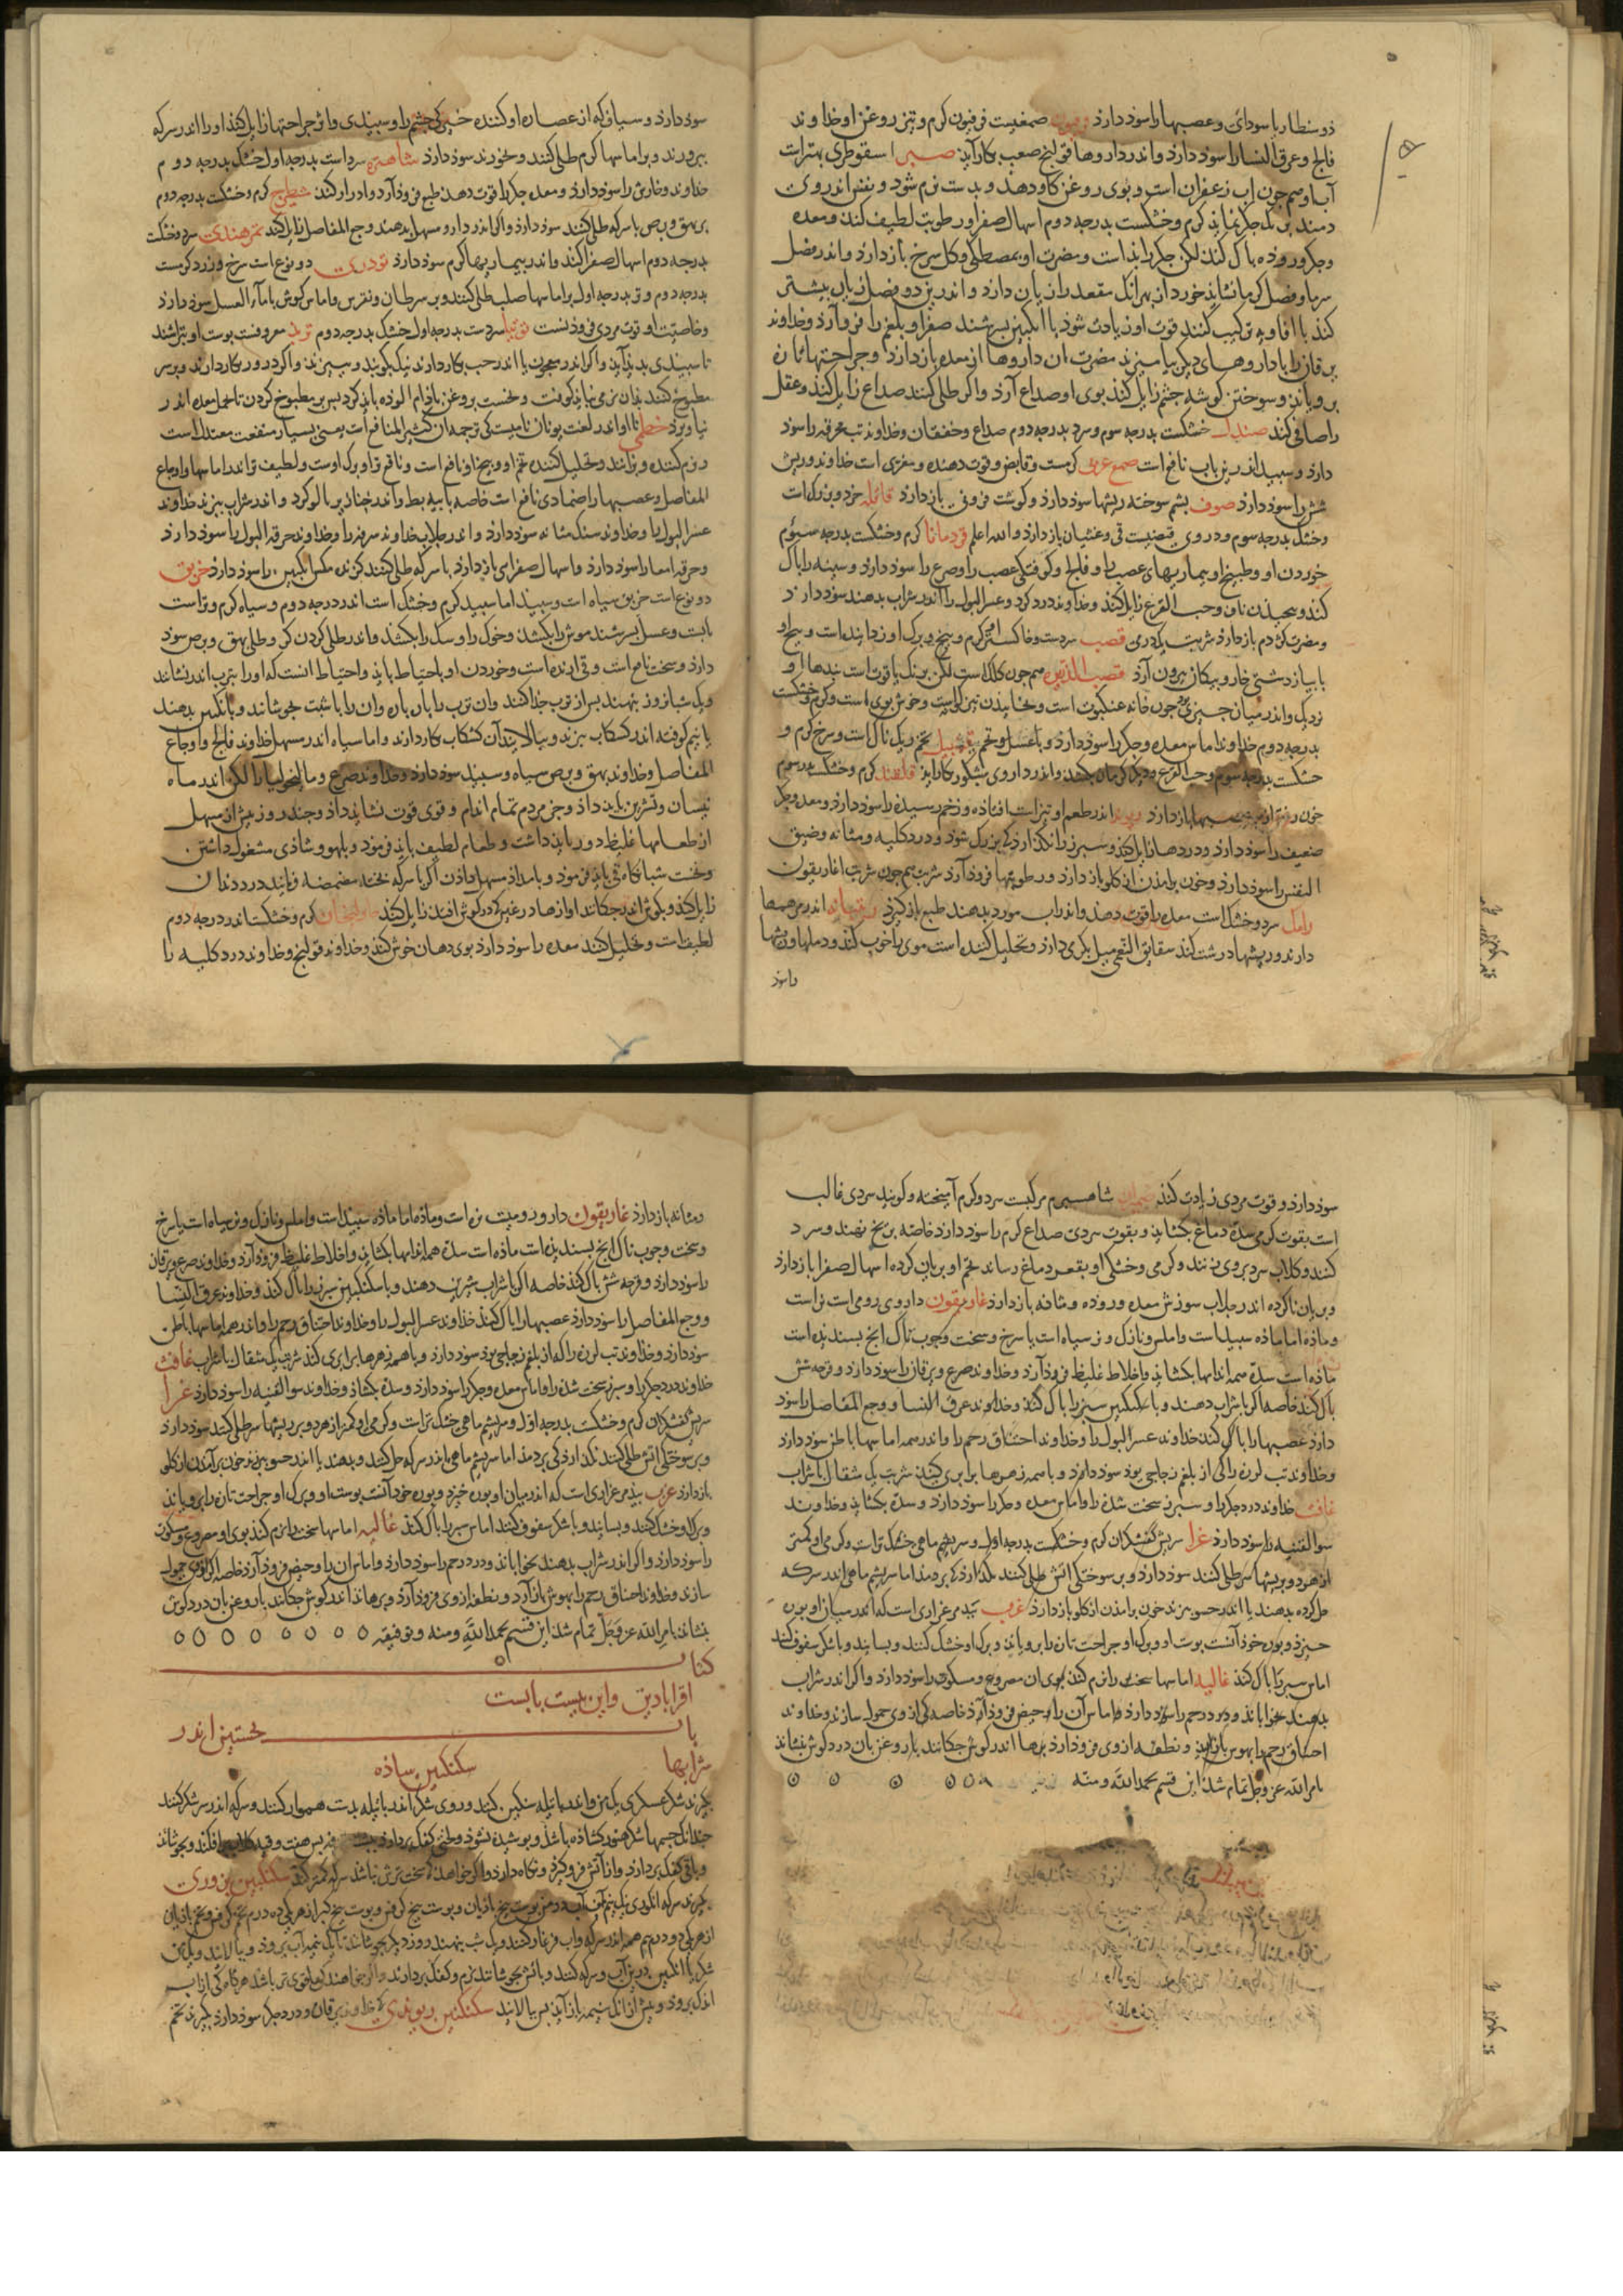 ذو سنطاریا سودائی وعصبها را سوذ دارذ فرفیون صمغیست فرفیون کرم وتیز روغن او خداوند
فالج وعرق النسا را سوذ دارذ واندر داروها قولنج صعب بکار آید صبر اسقوطری بهترست
آب او همچون اب زعفران است وبوی روغن کاو دهذ وبدست نرم شود ونفس اندر وی
دمند برنک جکر نماید کرم وخشکست بدرجه دوم اسهال صفرا ورطوبت لطیف کند ومعده
وجکر وروذه باک کند لکن جکر را بذ است ومضرت او بمصطکی وکل سرخ بازدارذ واندر فصل
سرما وفصل کرما نشاید خورد از بهر انک مقعد را زیان دارذ واندرین دو فصل زیان بیشتر
کنذ با افاویه ترکیب کنند قوت او زیادت شوذ با انکبین بسرشند صفرا وبلغم را فروذ آرذ وخداوند
یرقان را با داروهای دیکر بیامیزند مضرت ان داروها از معده بازدارذ وجراحتها تازه
برویاند وسوختن کوشه جشم زایل کند بوی او صداع آرذ واکر طلی کنند صداع زایل کنذ وعقل
را صافی کند صندل خشکست بدرجه سوم وسرد بدرجه دوم صداع وخفقان وخداوند تب محرقه را سوذ
دارذ وسبید اندرین باب نافع است صمغ عربی کرمست وقابض وقوت دهنده ومغری است خداوند ریش
شش را سوذ دارذ صوف بشم سوخته ریشها سوذ دارذ وکوشت فزونی بازدارذ قاقله خرد وبزرک است
وخشک بدرجه سوم ودر وی قبضیست قی وغثیان بازدارذ والله اعلم قردمانا کرم وخشکست بدرجه سیوم
خوردن او وطبیخ او بیماریهای عصب را وفالج وکوفتکی عصب را وصرع را سوذ دارذ وسینه را باک
کنذ وبیجیذن ناف وحب القرع زایل کنذ وخداوند درد کرده وعسر البول را اندر شراب بدهند سوذ دارذ
ومضرت کژدم بازدارذ شربت یکدرم قصب سردست وخاکستر کرم وبیخ وبرک او زداینده است وبیخ او
با بیاز دشتی خار وبیکان بیرون آرذ قصب الذریره همچون کلک است لکن برنک یاقوت است بندها او
نزدیک واندر میان جیزی بوذ جون خانه عنکبوت است وخاییدن تیز کواست وخوش بوی است وکرم وخشکست
بدرجه دوم خداوند اماس معده وجکر را سوذ دارذ وبا عسل وتخم قنبیل تخم ریک ناک است وسرخ کرم و
خشکست بدرجه سوم وحب القرع ودیکر کرمان بکشد واندر داروی بشکور بکار آید قلقند کرم وخشکست بدرجه سوم
ضعیف را سوذ دارذ ودردها زایل کنذ وسبرز را نکذارذ کی بزرک شوذ ودرد کلیه ومثانه وضیق
النفس را سوذ دارذ وخون برامذن از کلو بازدارذ ورطوبتها فروذ آرذ شربت همجون شربت اغاریقون
رامک سرد وخشک است معده را قوت دهذ واندر اب مورد بدهند طبع بازکیرذ ریتیانه اندر مرهمها
دارند وریشها درشت کند شقایق النعمن میل بکرمی دارذ وتحلیل کننده است موی را خوب کند ودملها وریشها
را سوذ
سوذ دارذ وسیافی که از عصاره او کنند خیرکی جشم را وسبیذی واثر جراحتها زایل کنذ او را اندر سرکه
ببرورند وبر اماسها کرم طلی کنند وبخورند سوذ دارذ شاهتره سرد است بدرجه اول خشک بدرجه دوم
خداوند خارش را سوذ دارذ ومعده وجکر را قوت دهذ طبع فروذ آرد وادرار کند شیطرج کرم وخشکست بدرجه دوم
بر بهق وبرص با سرکه طلی کنند سوذ دارذ واکر اندر دارو مسهل بدهند وجع المفاصل زایل کند تمر هندی سرد وخشکست
بدرجه دوم اسهال صفرا کند واندر بیماریها کرم سوذ دارذ تودری دو نوع است سرخ وزرد کرمست
بدرجه دوم وتر بدرجه اول بر اماسها صلب طلی کنند وبر سرطان ونقرس واماس کوش با ماء العسل سوذ دارذ
وخاصیت او قوت مردی فزوذنست توتیا سردست بدرجه اول خشک بدرجه دوم تربد معروفست بوست او بتراشند
تا سبیذی بدید آید واکر اندر معجون یا اندر حب بکار دارند نیک بکوبند وببیزند واکر در ور بکار دارند وبر سر
مطبوخ کنند بذان نرمی نباید کوفت ونخست بروغن باذام الوذه باید کرد بس بر مطبوخ کردن تا بخمل معده اندر
نیاویزد خطمی نام او اندر لغت یونان نامیست کی ترجمه ان کثیر المنافع است یعنی بسیار منفعت معتدل است
ونرم کننده وبزانند وتحلیل کننده تخم او وبیخ او نافع است ونافع تر او برک اوست ولطیف تر اندر اماسها واوجاع
المفاصل وعصبها را ضمادی نافع است خاصه با بیه بط واندر خناذیر بالوکرد واندر شراب ببزند خداوند
عسر البول را وخداوند سنک مثانه سوذ دارد واندر جلاب خداوند سرفه را وخداوند حرقه البول را سوذ دارد
وحرقه امعا را سوذ دارذ واسهال صفرا می بازدارذ با سرکه طلی کنند کزیدن مکس انکبین را سوذ دارذ خربق
دو نوع است خربق سیاه است وسبیذ اما سبید کرم وخشک است اندر درجه دوم وسیاه کرم وتر است
بابت وعسل بسرشند موش را بکشذ وخوک را وسک را بکشذ واندر طلی کردن کر وطلی بهق وبرص سود
دارذ وسخت نافع است وقی ارنده است وخوردن او باحتیاط باید واحتیاط انست که او را بترب اندر نشانند
ویک شبانروز بنهند بس از ترب جذا کنند وان ترب را باره باره وان را با شبت بجوشانند وبانکبین بدهند
یا نیم کوفته اندر کشکاب ببزند وببالایند آن کشکاب بکار دارند واما سیاه اندر مسهل خداوند فالج واوجاع
المفاصل وخداوند بهق وبرص سیاه وسبیذ سوذ دارذ وخداوند صرع ومالیخولیا را لکن اندر ماه
نیسان وتشرین باید داذ وجز مردم تمام اندام وقوی قوت نشاید داذ وجند روز بیش از مسهل
از طعامها غلیظ دور باید داشت وطعام لطیف باید فرموذ وبلهو وشاذی مشغول داشتن
ونخست شبانکاه قی باید فرموذ وبامداد مسهل داذن اکر با سرکه بخته مضمضه فرمایند درد دندان
زایل کنذ وبکوش اندر جکانند اوازها دروغین که در کوش افتد زایل کند خاولنجان کرم وخشکست اندر درجه دوم
لطیف است وتحلیل کند معده را سوذ دارذ بوی دهان خوش کند وخداوند قولنج وخداوند درد کلیه را
سوذ دارذ وقوت مردی زیادت کند شاهسبرم مرکبست سرد وکرم آمیخته وکویند سردی غالب
است بقوت کرمی سده دماغ بکشاید وبقوت سردی صداع کرم را سوذ دارذ خاصه بر یخ نهند وسرد
کنند وکلاب سرد بروی زنند وکرمی وخشکی او بقعر دماغ رساند تخم او بریان کرده اسهال صفرا بازدارذ
وبریان ناکرده اندر جلاب سوزش معده وروذه ومثانه بازدارذ غاریقون داروی رومی است نر است
وماذه اما ماذه سبیذ است واملس ونازک ونر سیاه است یا سرخ وسخت وجوب ناک انج بسندیده است
ماذه است سده همه اندامها بکشاید واخلاط غلیظ فروذ آرذ وخداوند صرع ویرقان را سوذ دارد وقرحه شش
باک کند خاصه اکر با شراب دهند وبا سکنکبین سبرز را باک کند وخداوند عرق النسا ووجع المفاصل را سوذ
دارذ عصبها را باک کند خداوند عسر البول را وخداوند اختناق رحم را واندر همه اماسها باطن سوذ دارذ
وخداوند تب لرزه را کی از بلغم زجاجی بوذ سوذ دارذ وبا همه زهرها برابری کند شربت یک مثقال با شراب
غافث خداوند درد جکر را وسبرز سخت شده را واماس معده وجکر را سوذ دارذ وسده بکشاید وخداوند
سوء القنیه را سوذ دارذ غرا سریش کفشکران کرم وخشکست بدرجه اول وسریشم ماهی خشک تر است وکرمی او کمتر
از هر دو بر ریشها سر طلی کنند سوذ دارذ وبر سوختکی اتش طلی کنند نکذارذ کی بر دمذ اما سریشم ماهی اندر سرکه
حل کرده بدهند یا اندر حسو ببزند خون برامذن از کلو بازدارذ غرب بید مرغزاری است که اندر میان او بوره
خیزد وبوره خوذ آنست بوست او وبرک او جراحت تازه را برویاند وبرک او خشک کنند وبسایند وبا شکر سفوف کنند
اماس سبرز را باک کنذ غالیه اماسها سخت را نرم کنذ بوی ان مصروع ومسکوت را سوذ دارذ واکر اندر شراب
بدهند بخواباند ودرد رحم را سوذ دارذ واماس آن را وحیض فروذ آرذ خاصه کی از وی حمول سازند وخداوند
اختناق رحم را بهوش باز آرد ونطفه از وی فروذ آرد برها اندر کوش جکانند با روغن بان درد کوش بنشاند
بامر الله عز وجل تمام شذ این قسم بحمد الله ومنه
ومثانه بازدارذ غاریقون دارو رومیست نر است وماذه اما ماذه سبیذ است واملس ونازک ونر سیاه است یا سرخ
وسخت وجوب ناک انج بسندیده است ماذه است سده همه اندامها بکشاید واخلاط غلیظ فروذ آرذ وخداوند صرع ویرقان
را سوذ دارذ وقرحه شش باک کند خاصه اکر با شراب شیرین دهند وبا سکنکبین سبرز را باک کند وخداوند عرق النسا
ووجع المفاصل را سوذ دارذ عصبها را باک کند خداوند عسر البول را وخداوند اختناق رحم را واندر همه اماسها باطن
سوذ دارذ وخداوند تب لرزه را که از بلغم زجاجی بوذ سوذ دارذ وبا همه زهرها برابری کند شربت یک مثقال با شراب غافث
خداوند درد جکر را وسبرز سخت شده را واماس معده وجکر را سوذ دارذ وسده بکشاذ وخداوند سوء القنیه را سوذ دارذ غرا
سریش کفشکران کرم وخشکست بدرجه اول وسریشم ماهی خشک تر است وکرمی او کمتر از هر دو بر ریشها سر طلی کنند سوذ دارذ
وبر سوختکی اتش طلی کنند نکذارذ کی بر دمذ اما سریشم ماهی اندر سرکه حل کنند وبدهند یا اندر حسو ببزند خون برآمدن از کلو
بازدارذ غرب بید مرغزاری است که اندر میان او بوره خیزد وبوره خوذ آنست بوست او وبرک او جراحت تازه را برویاند
وبرک او خشک کنند وبسایند وبا شکر سفوف کنند اماس سبرز را باک کند غالیه اماسها سخت را نرم کند بوی او مصروع ومسکوت
را سوذ دارذ واکر اندر شراب بدهند بخواباند ودرد رحم را سوذ دارذ واماس ان را وحیض فروذ آرذ خاصه اکر از وی حمول
سازند وخداوند اختناق رحم را بهوش باز آرد ونطفه از وی فروذ آرد وبرها اندر کوش جکانند با روغن بان درد کوش
بنشاند بامر الله عز وجل تمام شذ این قسم بحمد الله ومنه وتوفیقه
کتاب
اقرابادین واین بیست بابست
باب نخستین اندر
شرابها سکنکبین ساذه
بکیرند شکر عسکری یک من واندر باتیله سنکین کنند وروی شکر اندر باتیله بدست هموار کنند وسرکه اندر سر شکر کنند
جندانک جسمها شکر هنوز کشاذه باشذ وبوشیده نشوذ ولختی کفک بردارد بس کلاب برافکنند وبجوشانند
وباقی کفک بردارذ واز آتش فرو کیرذ ونکاه دارذ واکر خواهند کی سخت ترش نباشد سرکه کمتر کنند سکنکبین بزوری
بکیرند سرکه انکوری یک نیم من آب دو من بوست بیخ رازیان وبوست بیخ کرفس وبوست بیخ کبر از هر یکی ده درم تخم کرفس وتخم رازیان
از هر یکی دو درم نیم همه اندر سرکه واب فرغار کنند ویک شب بنهند روز دیکر بجوشانند تا یک نیمه آب برود وببالایند ویک من
شکر یا انکبین بدین آب وسرکه کنند وباتش بجوشانند نرم وکفک بردارند واکر خواهند کی قوی تر باشد هرکاه کی از اب
اندک برود وبیش از انک بنیمه باز آید بس ببالایند سکنکبین ریوندی خداوند یرقان ودرد جکر سوذ دارذ بکیرند تخم